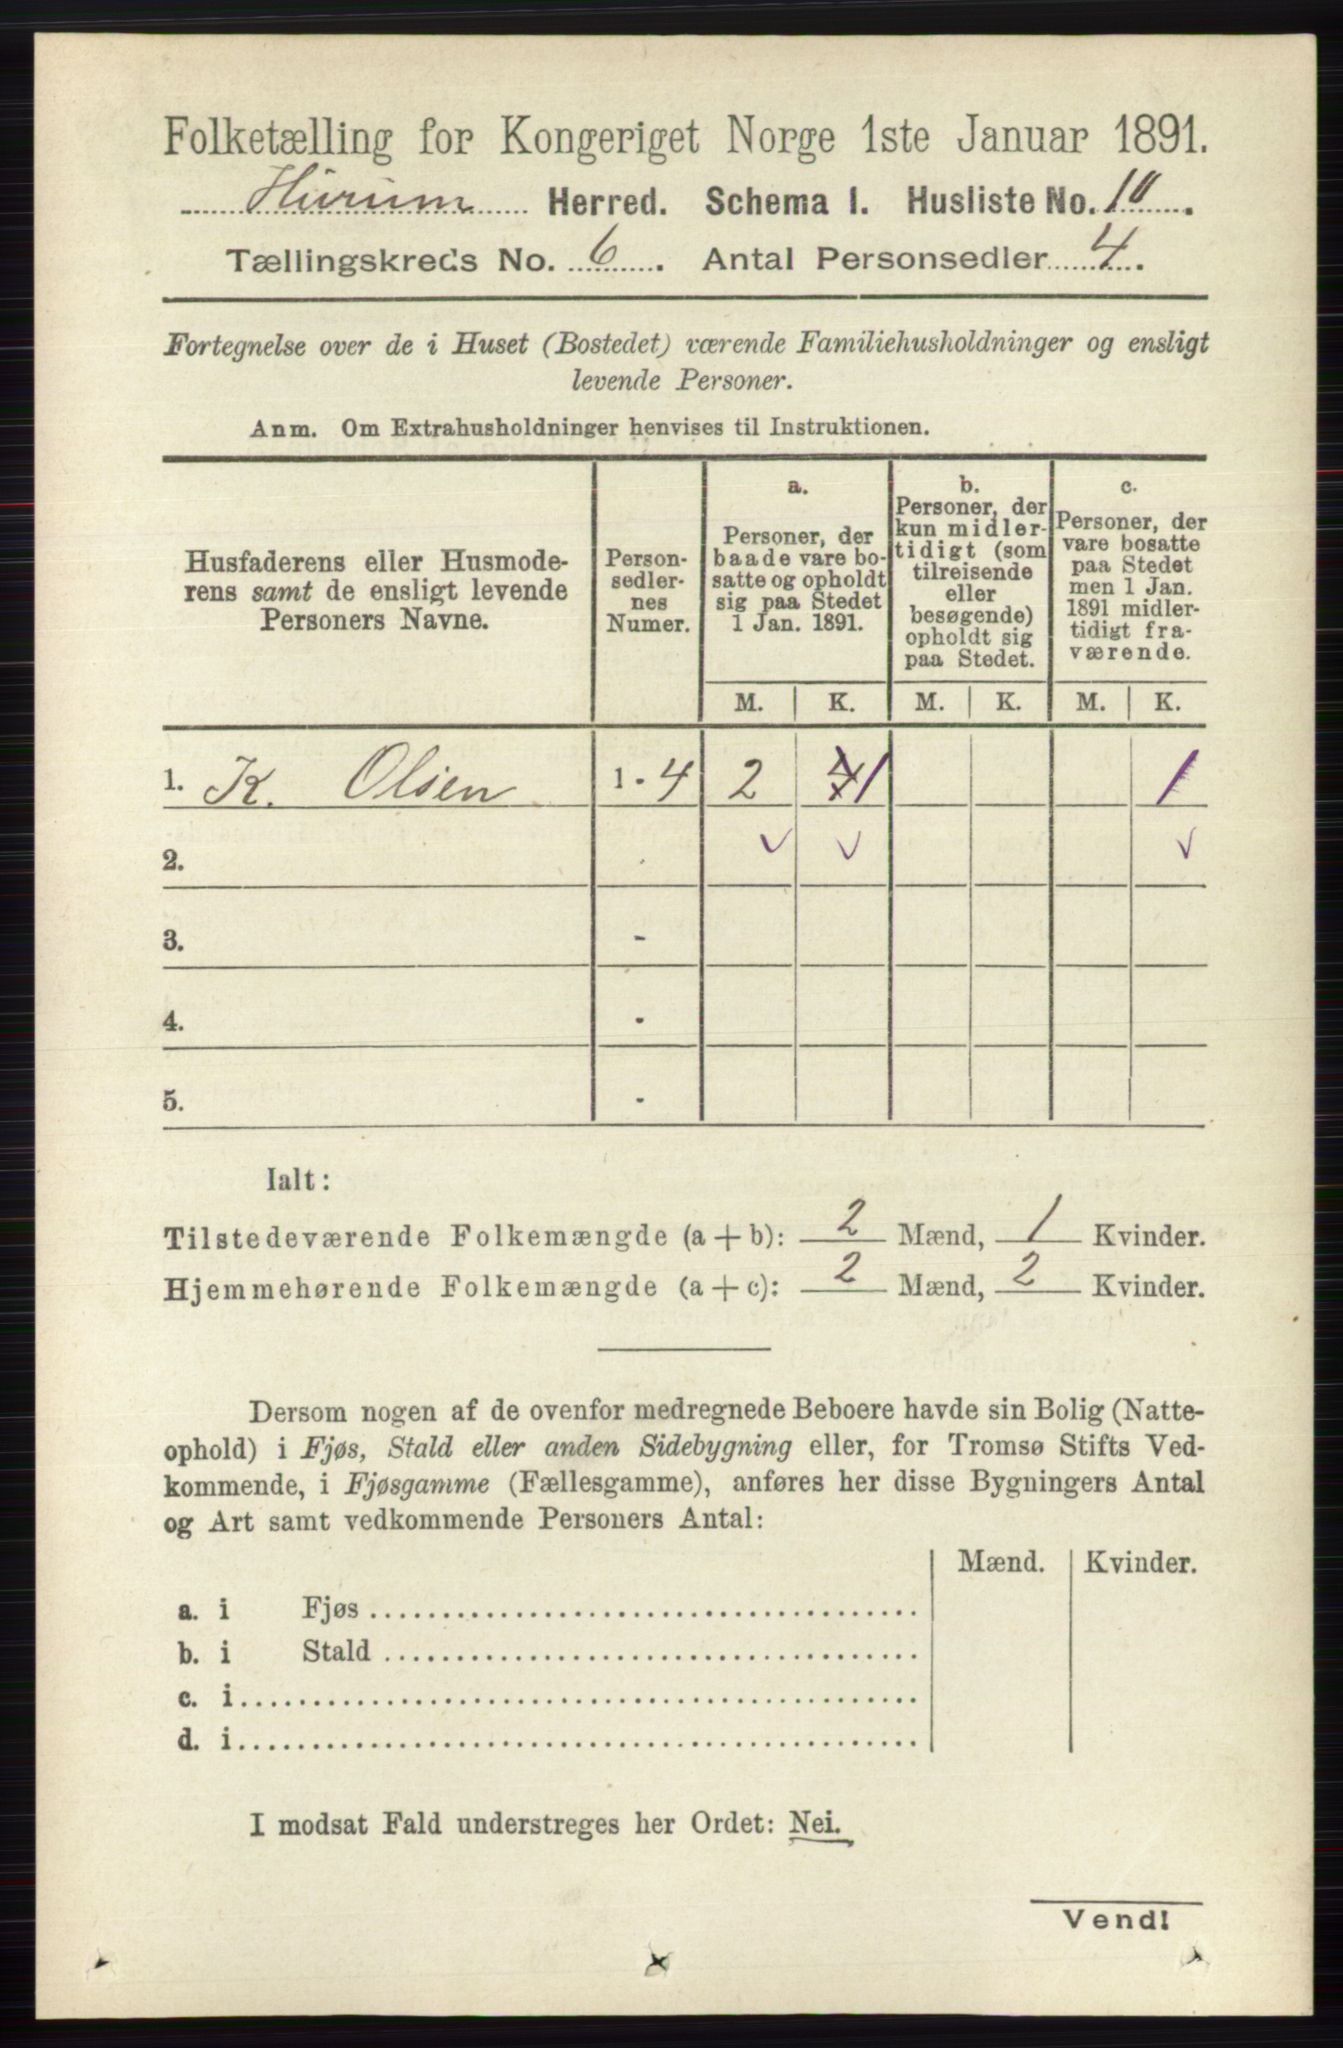 Folketælling for Kongeriget Norge 1ste Januar 1891.
Hurum Herred. Schema I. Husliste No. 10.
Tællingskreds No. 6. Antal Personsedler 4.
Fortegnelse over de i Huset (Bostedet) værende Familiehusholdninger og ensligt
levende Personer.
Anm. Om Extrahusholdninger henvises til Instruktionen.
Husfaderens eller Husmode-
rens samt de ensligt levende
Personers Navne.
Person-
sedler-
nes
Numer.
a.
Personer, der
baade vare bo-
satte og opholdt
sig paa Stedet
1 Jan. 1891.
b.
Personer, der
kun midler-
tidigt (som
tilreisende
eller
besøgende)
opholdt sig
paa Stedet.
c.
Personer, der
vare bosatte
paa Stedet
men 1 Jan.
1891 midler-
tidigt fra-
værende.
M. K. M. K. M. K.
1. K. Olsen 1-4 2 1 1
2.
3. -
4. -
5. -
Ialt:
Tilstedeværende Folkemængde (a + b): 2 Mænd, 1 Kvinder.
Hjemmehørende Folkemængde (a + c): 2 Mænd, 2 Kvinder.
Dersom nogen af de ovenfor medregnede Beboere havde sin Bolig (Natte-
ophold) i Fjøs, Stald eller anden Sidebygning eller, for Tromsø Stifts Ved-
kommende, i Fjøsgamme (Fællesgamme), anføres her disse Bygningers Antal
og Art samt vedkommende Personers Antal:
Mænd. Kvinder.
a. i Fjøs
b. i Stald
c. i
d. i
I modsat Fald understreges her Ordet: Nei.
Vend!